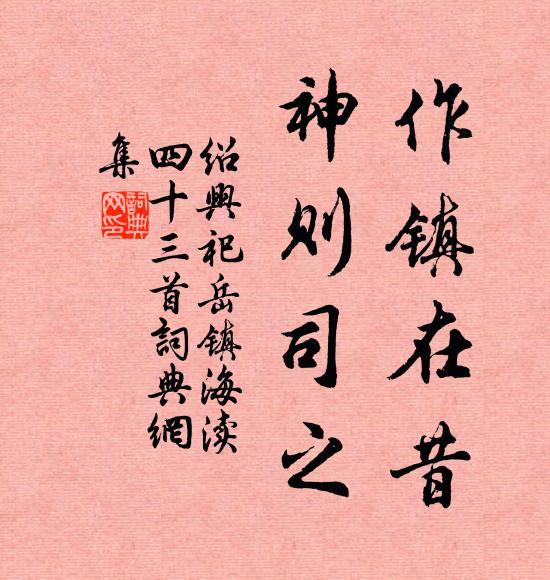 作镇在昔
神则司之
绍興祀岳镇海渎
四十三首詞典網
集
詞典网印